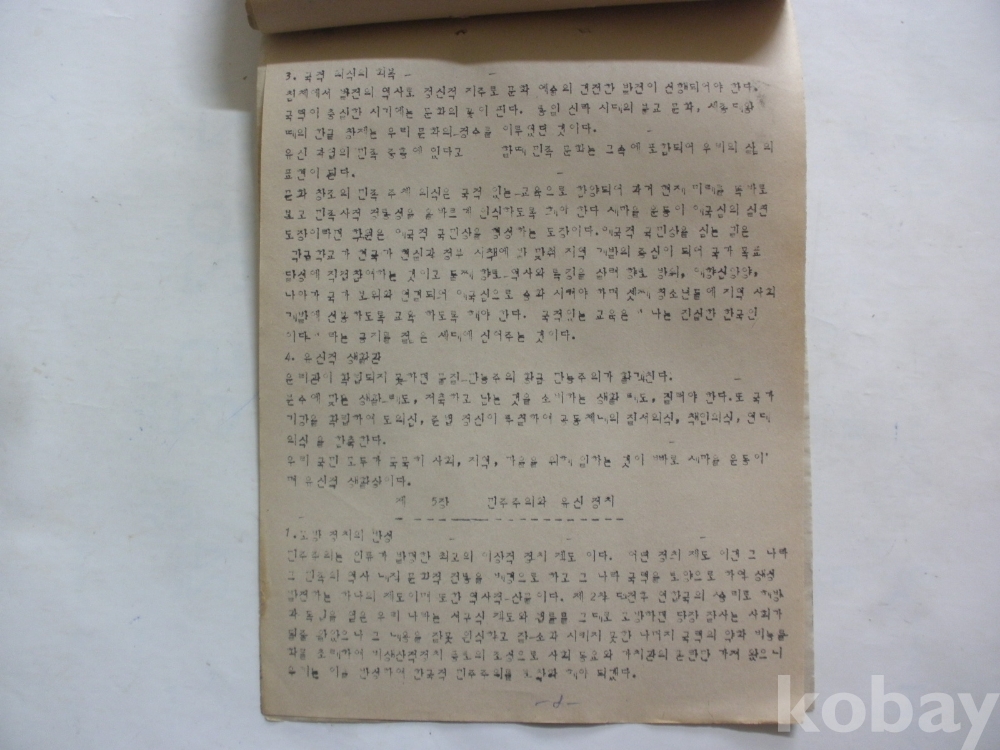 3. 국적 의식의 회복
국력이 충실한 시기에는 문화의 꽃이 핀다. 통일 신라 시대의 불교 문화, 세종대왕
때의 한글 창제는 우리 문화의 정수를 이루었던 것이다.
유신 과업의 민족 중흥에 있다고 할때 민족 문화는 그속에 포함되어 우리의 삶의
표현이 된다.
문화 창조의 민족 주체 의식은 국적 있는 교육으로 함양되어 과거 현재 미래를 똑바로
보고 민족사적 정통성을 올바르게 인식하도록 해야 한다 새마을 운동이 애국심의 실천
도장이라면 학원은 애국적 국민상을 형성하는 도장이다. 애국적 국민상을 심는 길은
각급학교가 연구가 현실과 정부 시책에 발 맞춰 지역 개발의 중심이 되어 국가 목표
달성에 직접참여하는 것이고 둘째 향토 역사와 특징을 살려 향토 방위, 애향심앙양,
나아가 국가 보위와 연결되어 애국심으로 승화 시켜야 하며 셋째 청소년들에 지역 사회
개발에 선용하도록 교육 하도록 해야 한다. 국적있는 교육은 ' 나는 진실한 한국인
이다' 하는 긍지를 젊은 세대에 심어주는 것이다.
4. 유신적 생활관
윤리관이 확립되지 못하면 물질 만능주의 황금 만능주의가 활개친다.
분수에 맞는 생활 태도, 저축하고 남는 것을 소비하는 생활 태도, 잡혀야 한다. 또 국가
기강을 확립하여 도의심, 준법 정신이 투철하여 공동체내의 질서의식, 책임의식, 연대
의식을 갖춘다.
우리 국민 모두가 묵묵히 사회, 지역, 마을을 위해 일하는 것이 '바로 새마을 운동이'
며 유신적 생활상이다.
제 5장 민주주의와 유신 정치
1. 모방 정치의 반성
민주주의는 인류가 발명한 최고의 이상적 정치 제도 이다. 어떤 정치 제도 이건 그 나라
그 민족의 역사 내지 문화적 전통을 배경으로 하고 그 나라 국력을 토양으로 하여 생성
발전하는 하나의 제도이며 또한 역사적 산물이다. 제 2차 대전후 연합국의 승리로 해방
과 독립을 얻은 우리 나라는 서구식 제도와 법률을 그대로 모방하면 당장 잘사는 사회가
될줄 알았으나 그 내용을 잘못 인식하고 잘 소화 시키지 못한 나머지 국력의 약화 비능률
화를 초래하여 비생산적정치 풍토의 조성으로 사회 동요와 가치관의 혼란만 가져 왔으니
우리는 이를 반성하여 한국적 민주주의를 토착화 해야 되겠다.
kobay